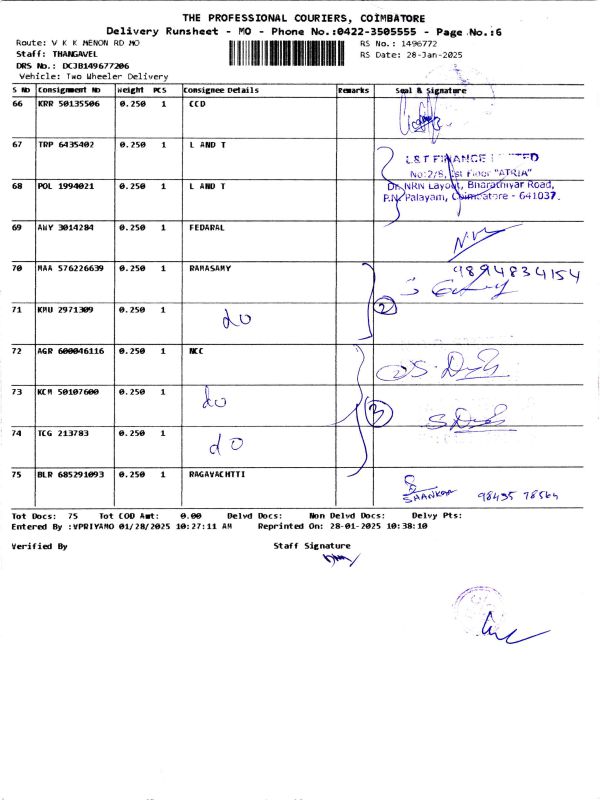 THE PROFESSIONAL COURIERS, COIMBATORE
Delivery Runsheet - MO - Phone No.:0422-3505555 - Page No.:6
Route: V K K MENON RD MO
RS No.: 1496772
Staff: THANGAVEL
RS Date: 28-Jan-2025
DRS No.: DCJB149677206
Vehicle: Two Wheeler Delivery
S No Consignment No Weight PCS Consignee Details Remarks Seal & Signature
66 KRR 50135506 0.250 1 CCD
67 TRP 6435402 0.250 1 L AND T
L&T FINANCE LIMITED
No:2/8, 1st Floor "ATRIA"
68 POL 1994021 0.250 1 L AND T
Dr. NRN Layout, Bharathiyar Road,
P.N. Palayam, Coimbatore - 641037.
69 AWY 3014284 0.250 1 FEDARAL
70 MAA 576226639 0.250 1 RAMASAMY
9894834154
71 KMU 2971309 0.250 1 do 2
72 AGR 600046116 0.250 1 NCC
73 KCM 50107600 0.250 1 do 3
74 TCG 213783 0.250 1 do
75 BLR 685291093 0.250 1 RAGAVACHTTI
SHANKAR
Tot Docs: 75 Tot COD Amt: 0.00 Delvd Docs: Non Delvd Docs: Delvy Pts:
Entered By :VPRIYAMO 01/28/2025 10:27:11 AM Reprinted On: 28-01-2025 10:38:10
Verified By Staff Signature